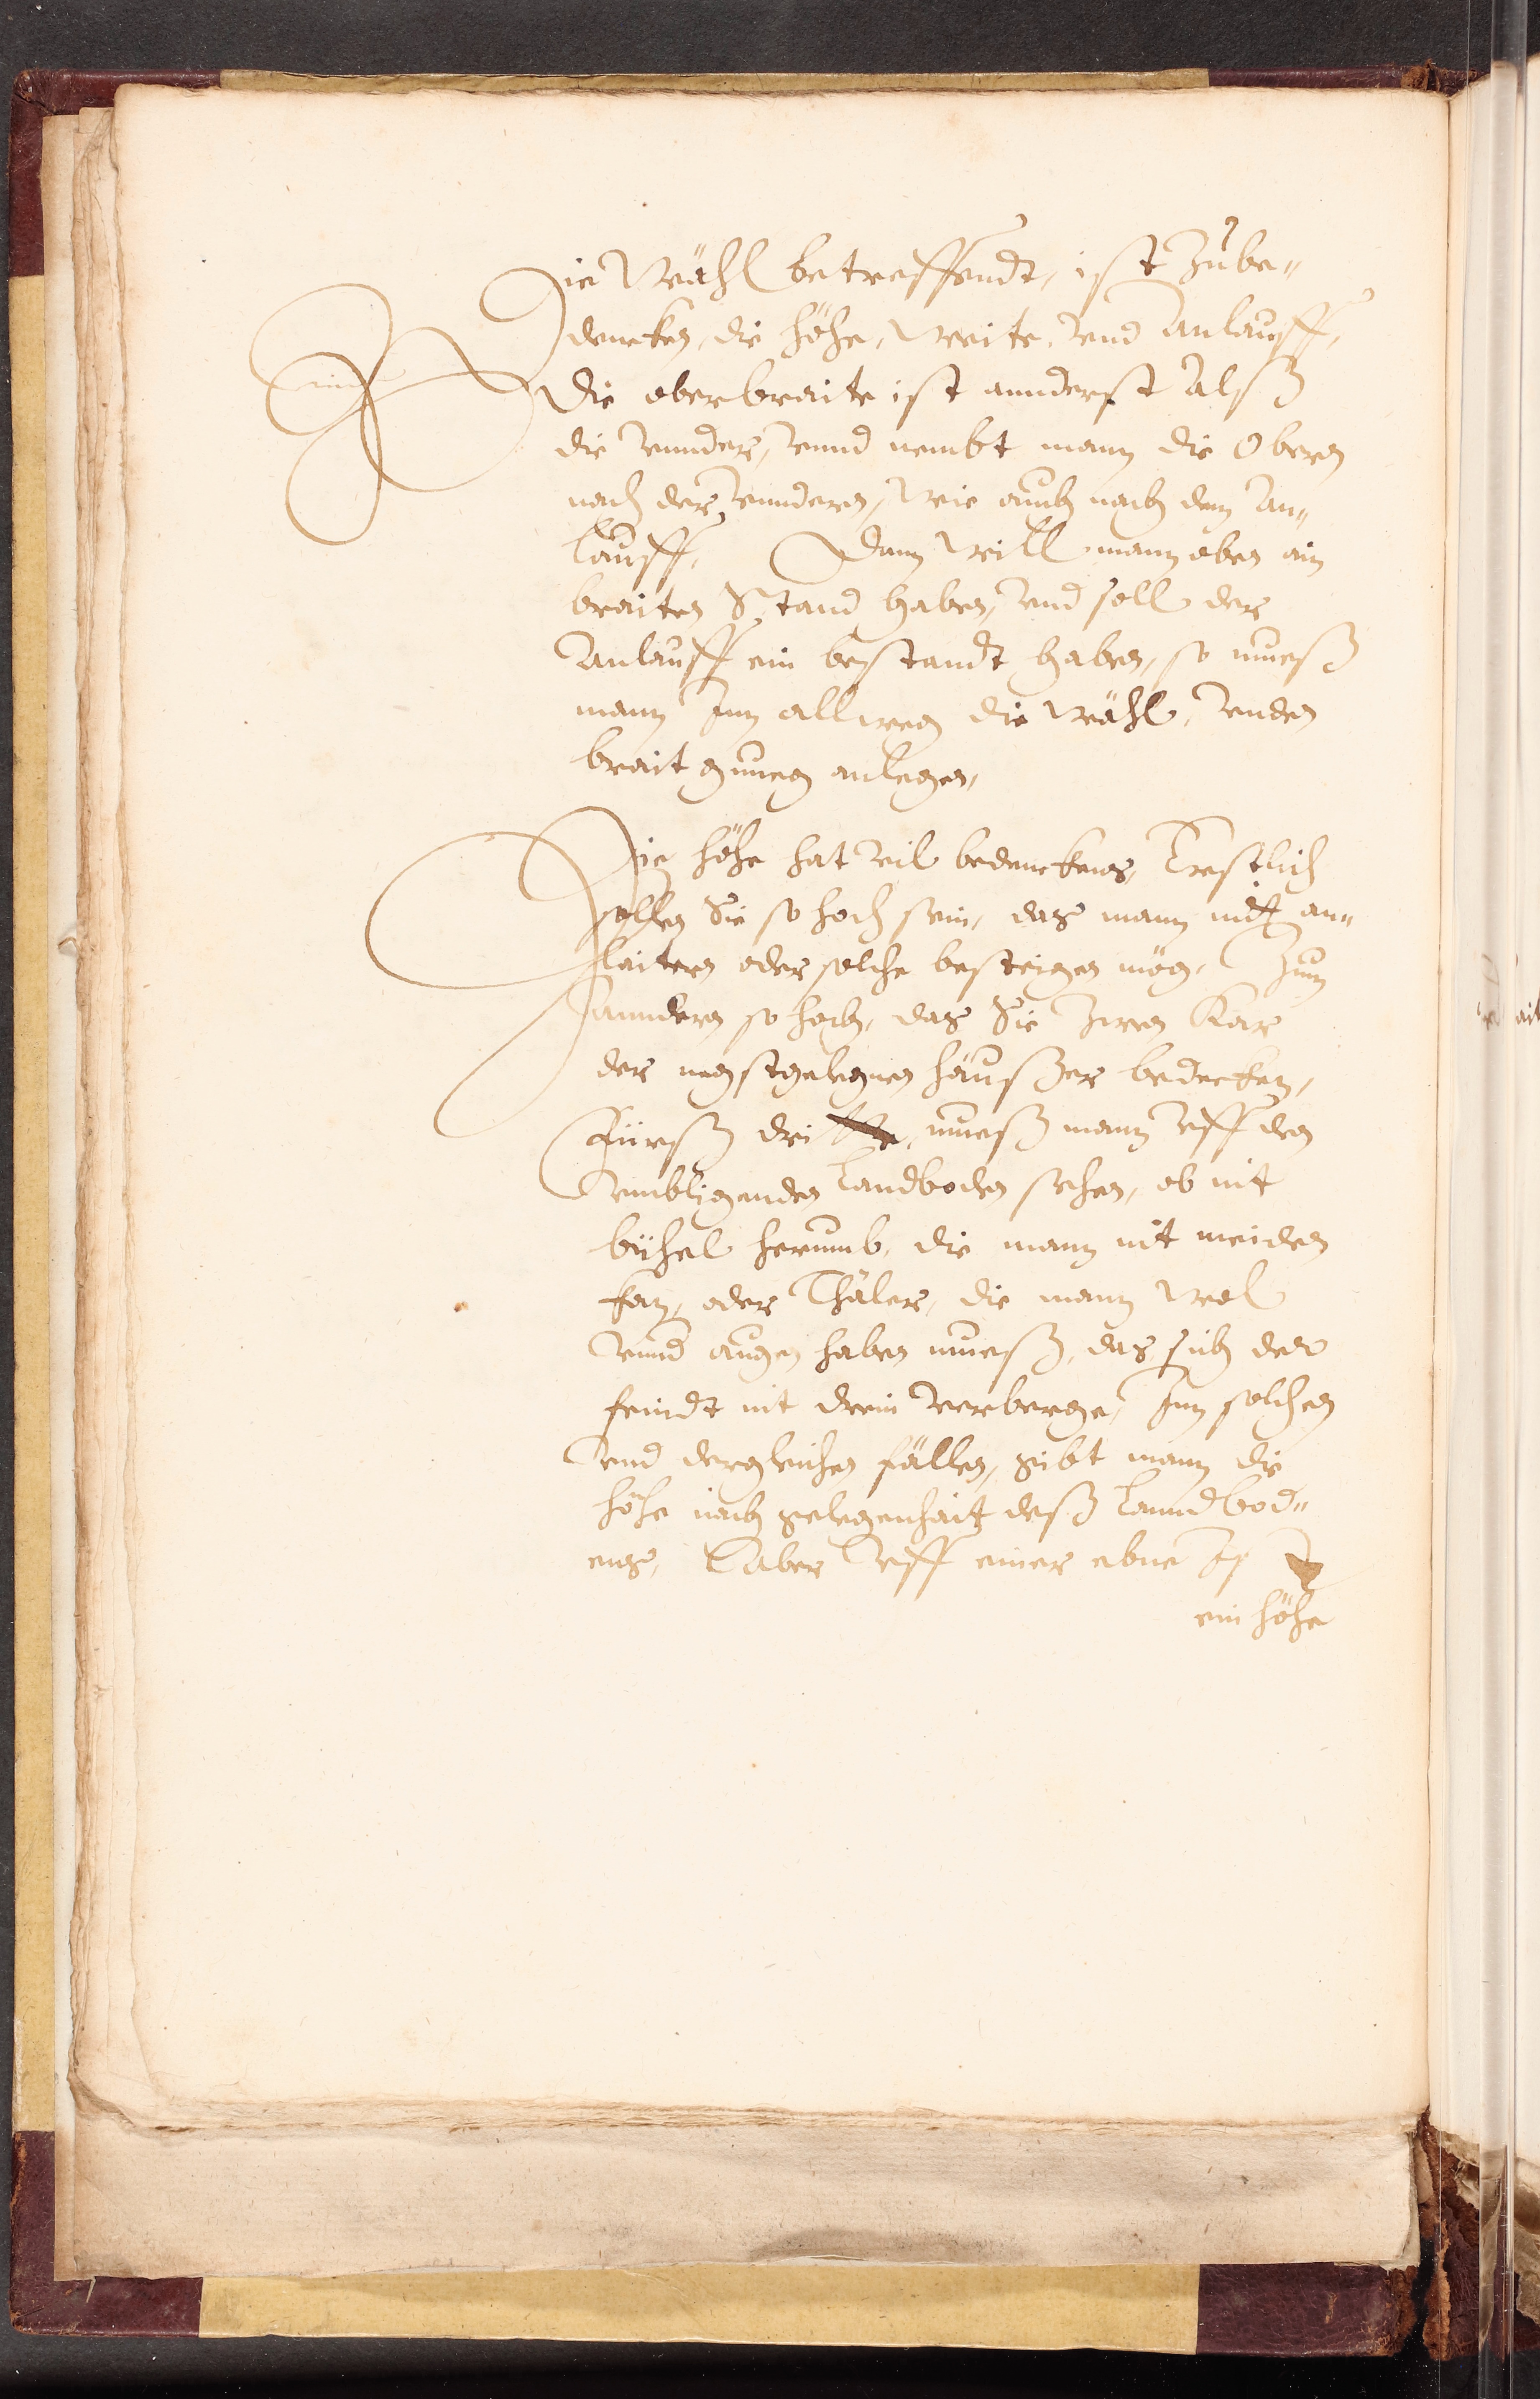 Die Wähl betreffendt, ist Zube„
dencken, die höhe, Weite, vnd Anlauff,
Die oberbraite ist annderst Alß
die vnnder, vnnd nembt mann die Obern
nach der vnndern, Wie auch nach dem An„
lauff, Dann Will mann oben ain
braiten Stand haben, vnd soll der
Anlauff ein bestandt haben, so mueß
mann Inn allweg die Wähl, vnden
brait gnueg anlegen,
Die höhe hat vil bedenckens, Erstlich
sollen Sie so hoch sein, das mann nit an„
laitern oder solche besteigen mög, Zum
anndern so hoch, das Sie Iren
der negstgelegnen häußer bedecken,
Fürß dri mueß mann vff den
vmbligenden Landboden sehen, ob nit
bühel herumb, die mann nit meiden
kan, oder Thäler, die mann Wol
vnnd augen haben mueß, das sich der
feindt nit drein verberge, Inn solchen
vnd dergleichen fällen, gibt mann die
höhe nach gelegenhait deß Lanndbod„
ens, Aber vff einer ebne Ist
ein höhe